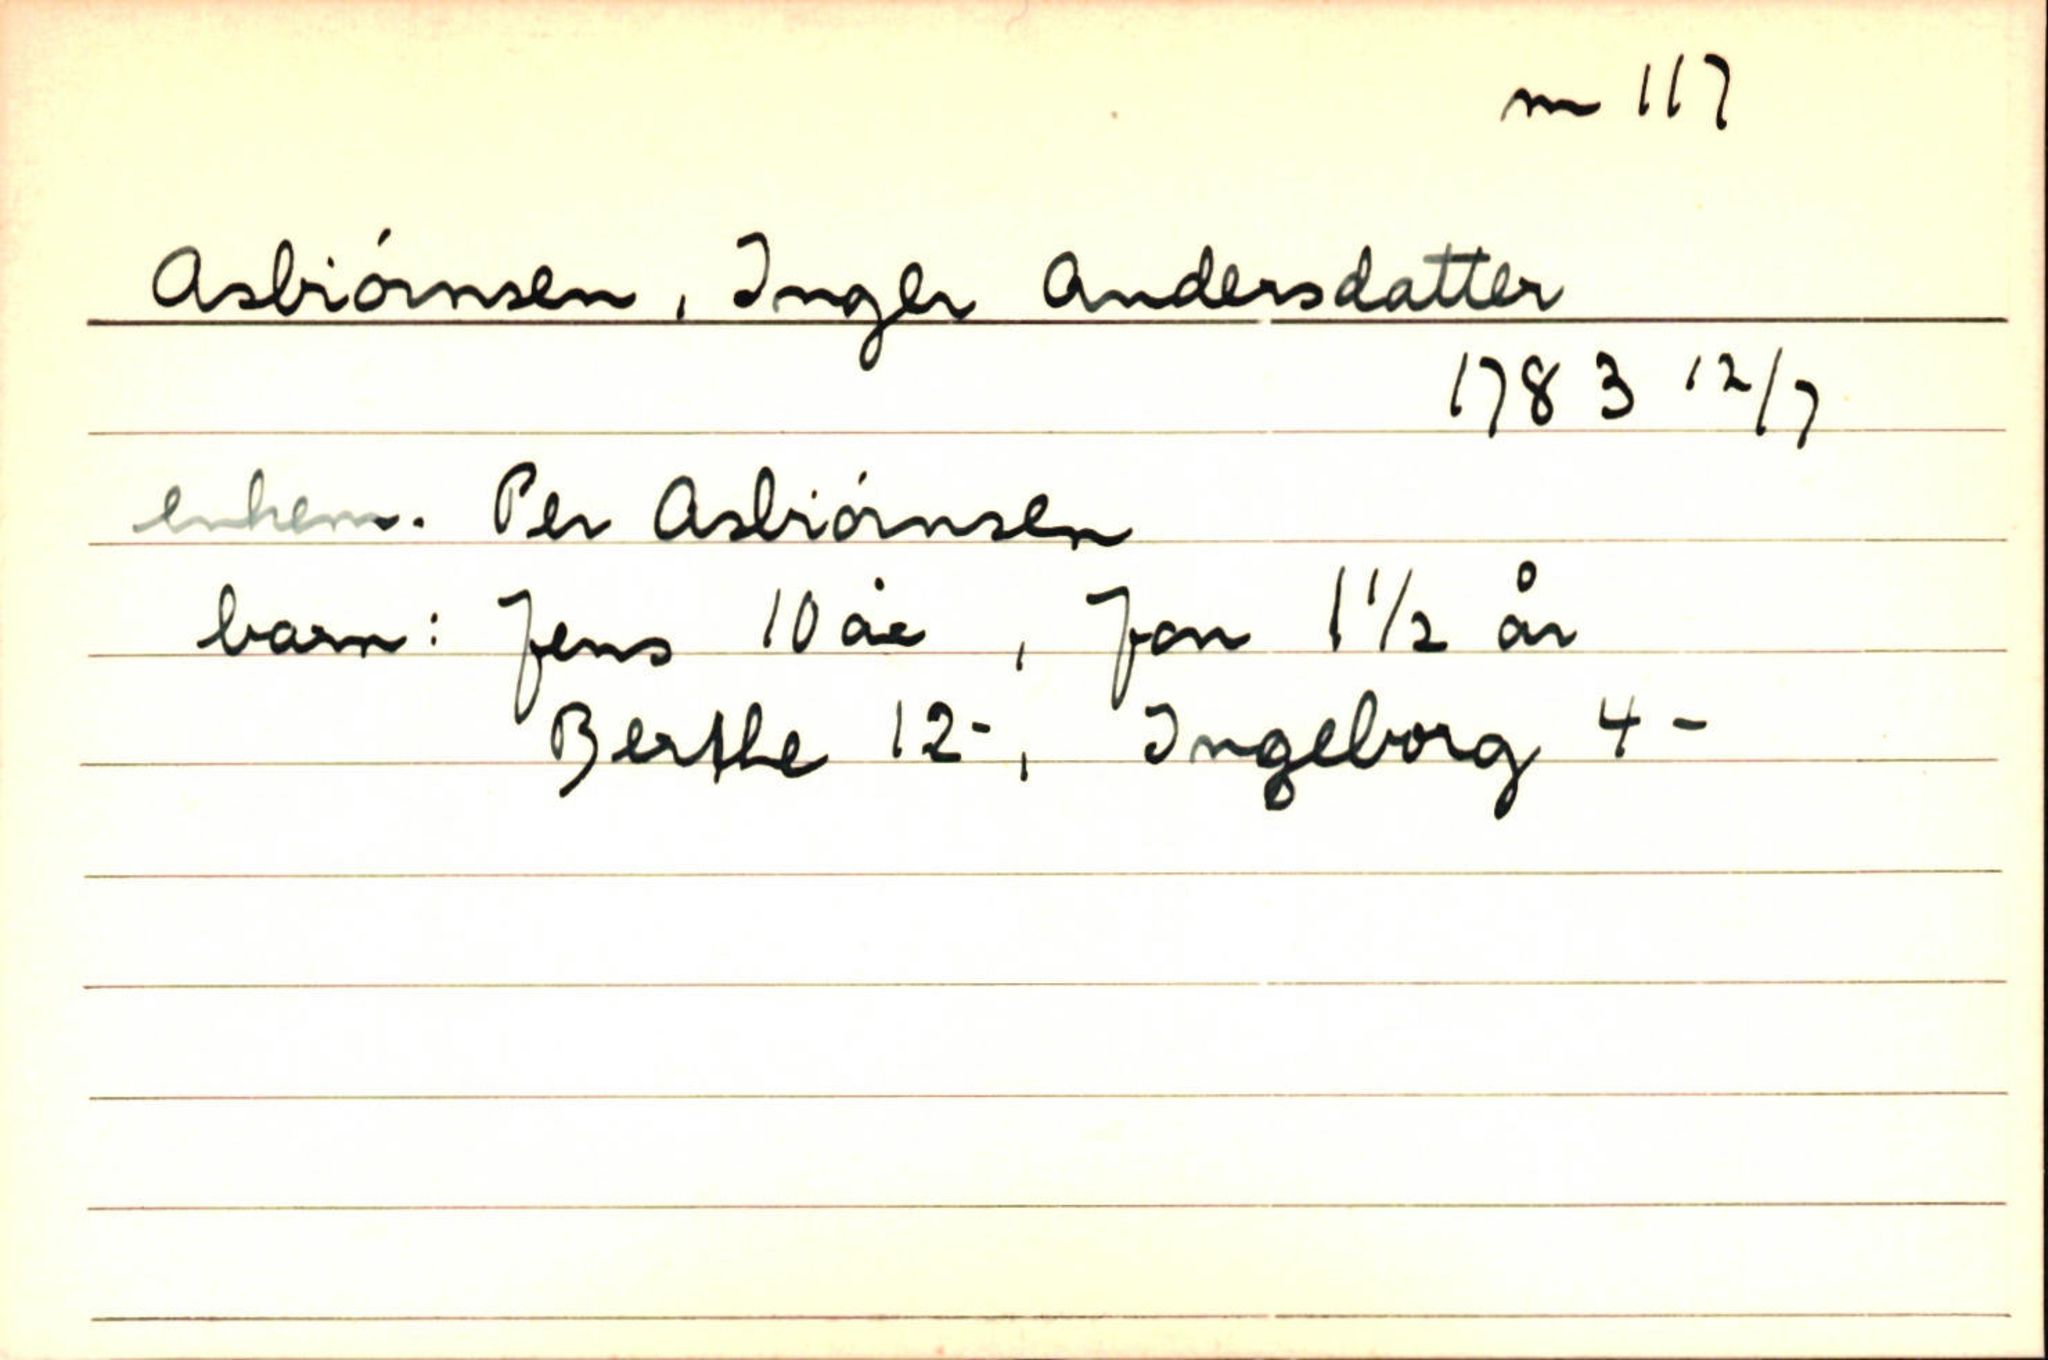 m 117
Asbiórnsen, Inger Andersdatter
1783 12/7
enkem. Per Asbiórnsen
barn: Jens 10 år, Jon 1 1/2 år
Berthe 12-, Ingeborg 4-